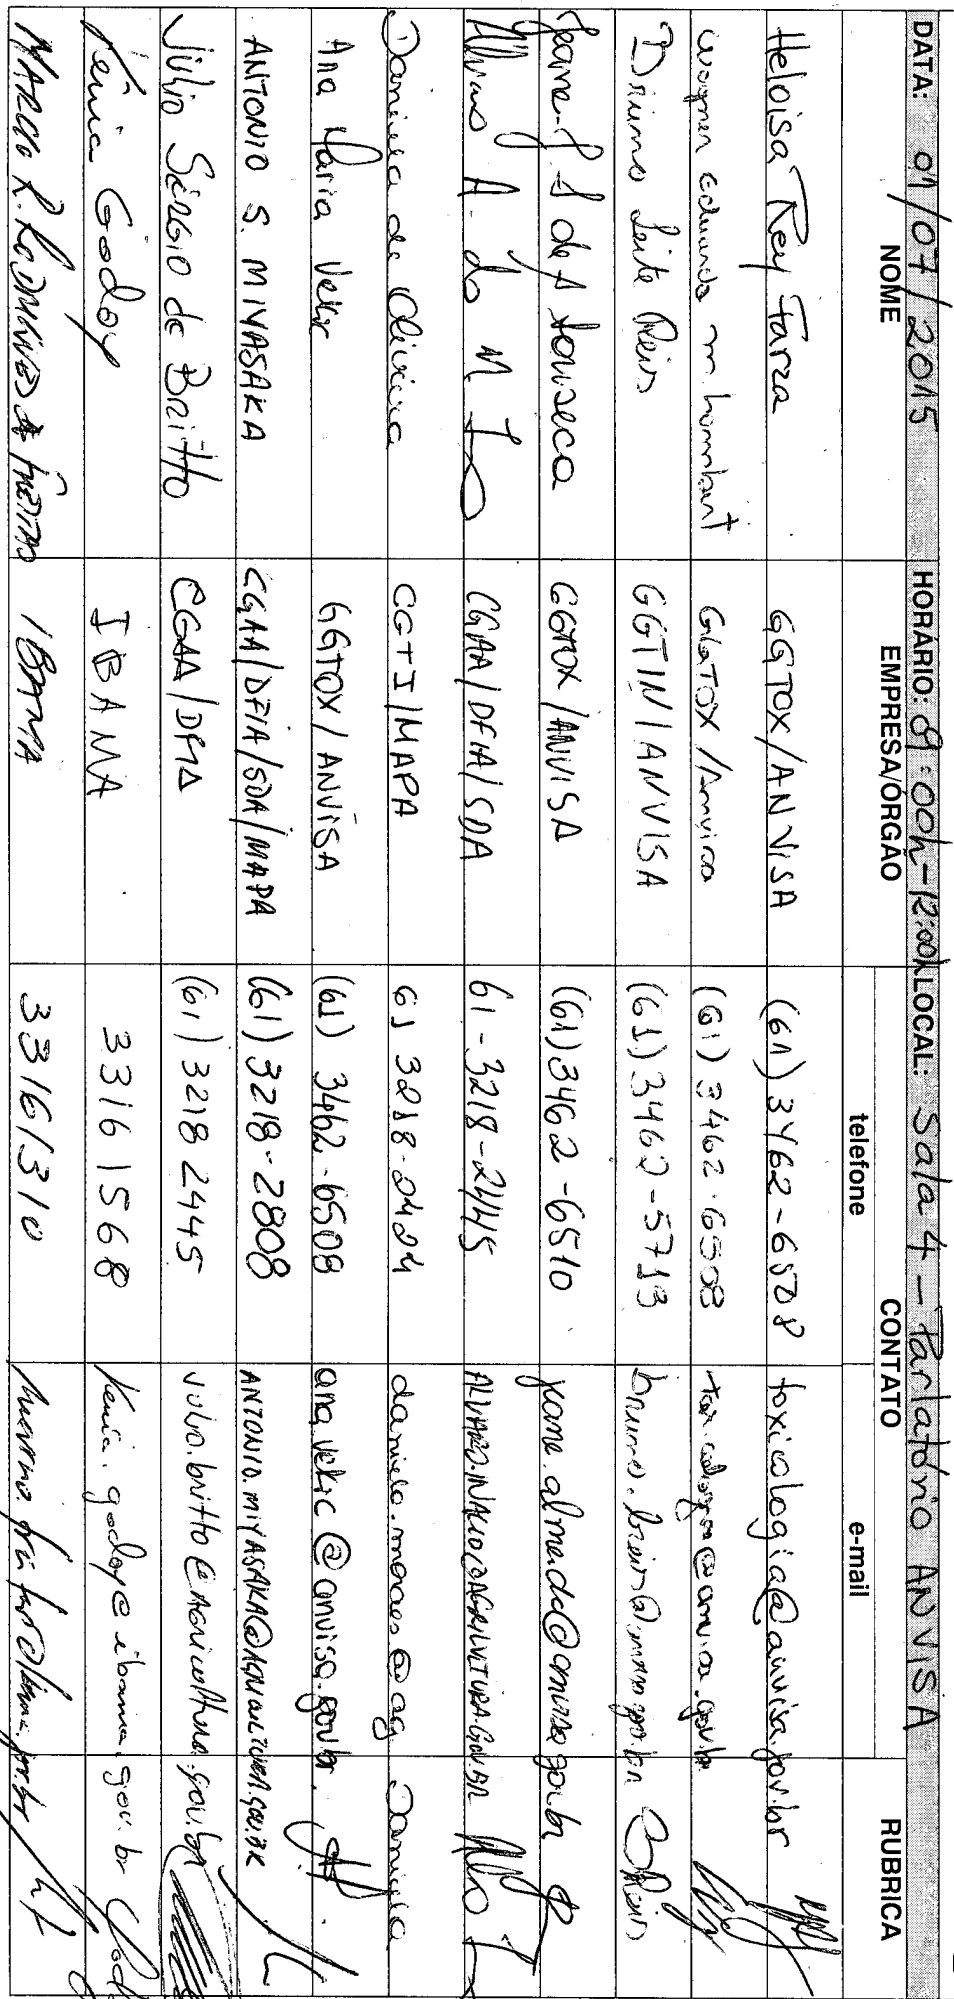 DATA: 01/07/2015 HORÁRIO: 09:00h-12:00h LOCAL: Sala 4 - Parlatório ANVISA
NOME EMPRESA/ÓRGÃO CONTATO RUBRICA
telefone e-mail
Heloisa Rey Farza GGTOX/ANVISA (61) 3462-6508 toxicologia@anvisa.gov.br
GGTOX/Anvisa (61) 3462-6508
Leite Reis GGTIN/ANVISA (61) 3462-5713
Jeane Fonseca GGTOX/ANVISA (61) 3462-6510 jeane.almeida@anvisa.gov.br
A. do M. CGAA/DFIA/SDA 61-3218-2445 ALVARO.INACIO@AGRICULTURA.GOV.BR
Daniela de Oliveira CGTI/MAPA 61 3218-2424 Daniela
Ana Maria Vekic GGTOX/ANVISA (61) 3462-6508 ana.vekic@anvisa.gov.br
ANTONIO S. MIYASAKA CGAA/DFIA/SDA/MAPA (61) 3218-2808 ANTONIO.MIYASAKA@AGRICULTURA.GOV.BR
Júlio Sérgio de Britto CGAA/DFIA (61) 3218 2445 julio.britto@agricultura.gov.br
Kênia Godoy IBAMA 3316 1568 kenia.godoy@ibama.gov.br
IBAMA 33161310